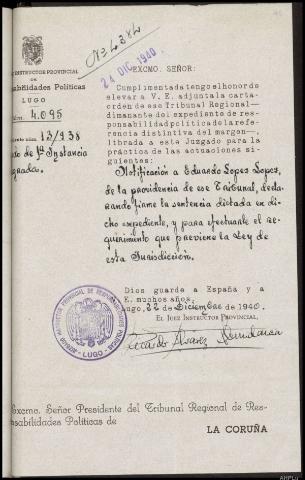 24 DIC. 1940
INSTRUCTOR PROVINCIAL
DE
Responsabilidades Políticas
LUGO
Núm. 4.095
EXCMO. SEÑOR:
Cumplimentada tengo el honor de
elevar a V. E. adjunta la carta-
orden de ese Tribunal Regional—
dimanante del expediente de res-
ponsabilidad política de la refe-
rencia distintiva del margen—,
librada a este Juzgado para la
práctica de las actuaciones si-
guientes:
13/938
de 1ª Instancia
Notificación a Eduardo Lopes Lopes,
de la providencia de ese Tribunal, decla-
rando firme la sentencia dictada en di-
cho expediente, y para efectuarle el re-
querimiento que previene la Ley de
esta Jurisdicción.
Dios guarde a España y a
E. muchos años.
Lugo, 22 de Diciembre de 1940.
EL JUEZ INSTRUCTOR PROVINCIAL,
JUZGADO INSTRUCTOR PROVINCIAL DE RESPONSABILIDADES POLITICAS
- LUGO -
Excmo. Señor Presidente del Tribunal Regional de Res-
ponsabilidades Políticas de
LA CORUÑA